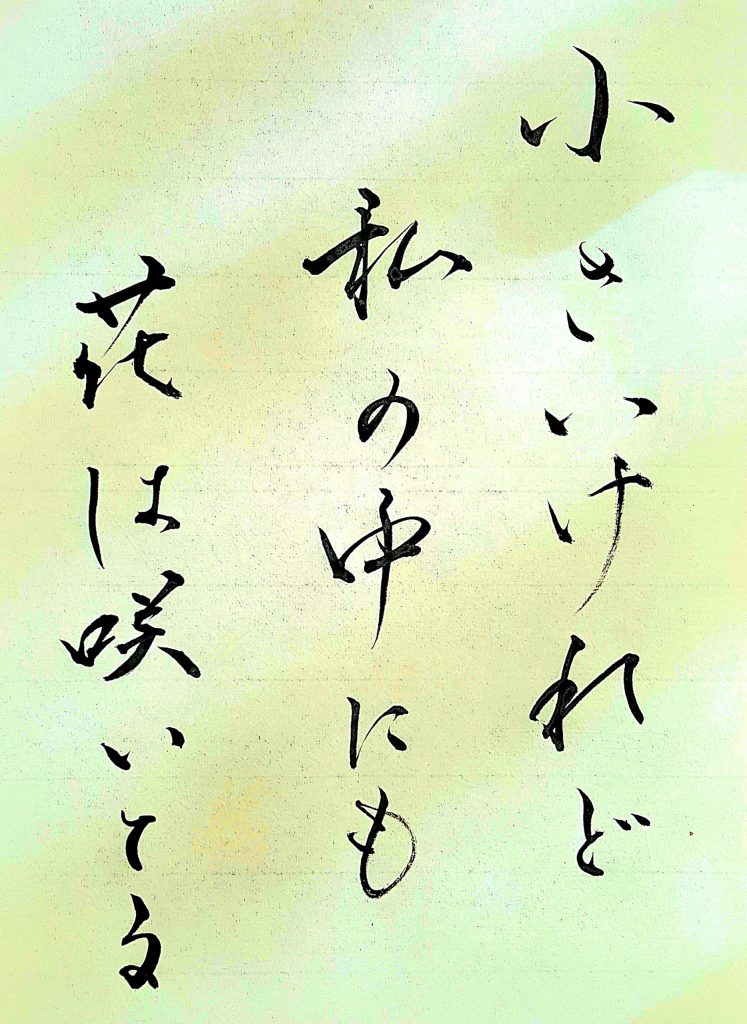 小さいけれど
私の中にも
花は咲いてる